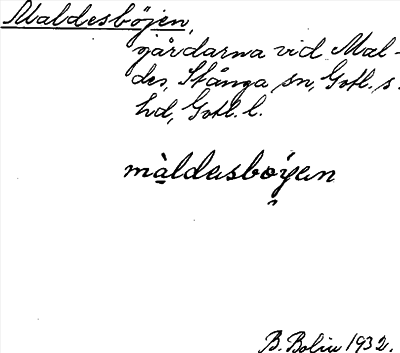 Maldesböjen,
gårdarna vid Mal-
des, Stånga sn, Gotl. s.
hd, Gotl. l.
màldasbǫyen
B. Bolin 1932.